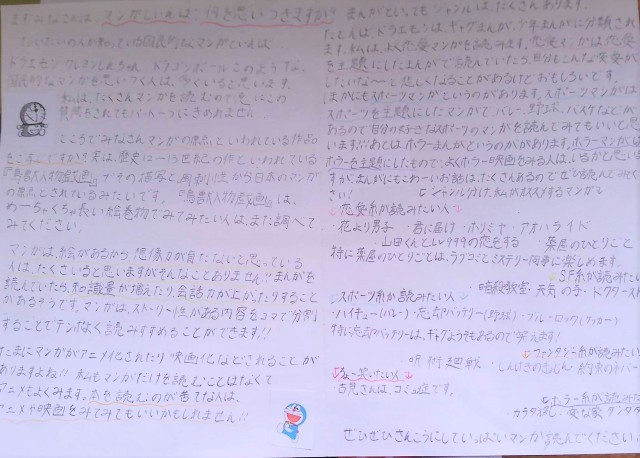 まずみなさんは、マンガといえば何を思いつきますか?
だいたいの人が知っている国民的なマンガといえば
ドラエモン、クレヨンしんちゃん、ドラゴンボールこのような、
国民的なマンガを思いつく人は、多くいると思います。
私は、たくさんマンガを読むので急にこの
質問をされてもパッと一つにきめれません。
ここでみなさんマンガの原点といわれている作品
をご存じですか?実は、歴史12~13世紀の作といわれている
『鳥獣人物戯画』でその描写と周制性から日本のマンガ
の原点とされているみたいです。『鳥獣人物戯画』は、
めーちゃくちゃ長い絵巻物でみてみたい人は、また調べて
みてください。
マンガは、絵があるから想像力が育たないと思っている
人は、たくさいると思いますがそんなことありません!!まんがを
読んでいたら知識量が増えたり、会話力が上がったりすること
があるそうです。マンガは、ストーリー性がある内容をコマで"分割"
することでテンポよく読みすすめることができます!!
たまにマンガがアニメ化されたり映画化などされることが
ありますよね!!私もマンガだけを読むことはなくて
アニメもよくみます。本を読むのが苦てな人は、
アニメや映画をみてみてもいいかもしれません!!
まんがといってもジャンルは、たくさんあります。
たとえば、ドラエモンは、ギャグまんが、少年まんがに分類され
ます。私は、よく恋愛マンガを読みます。恋愛マンガは恋愛
を主題にしたまんがで読んでいたら、自分もこんな恋愛が
したいな~と悲しくなることがあるけどおもしろいです。
ほかにもスポーツマンガというのがあります。スポーツマンガは
スポーツを主題にしたマンガで、バレー、野球、バスケなどが
あるので自分の大好きなスポーツのマンガを読んでみてもいいと思
います!!あとは、ホラーまんがというのがあります。ホラーマンガは
ホラーを主題にしたもので、よくホラー映画をみる人は、いるかと思いま
すが、まんがにもこわーいお話は、たくさんあるのでぜひ読んでみてく
ださい! ジャンル分け、私がオススメするマンガ
恋愛系が読みたい人
・花より男子 ・君に届け・ホリミヤ・アオハライド
・山田くんとLv999の恋をする ・薬屋のひとりごと
特に薬屋のひとりごとは、ラブコメとミステリー同事に楽しめます。
SF系が読みたい
・暗殺教室・天気の子・ドクタースト
スポーツ系が読みたい人
・ハイキュー(バレー)・忘却バッテリー(野球)・ブルーロック(サッカー)
特に忘却バッテリーは、ギャグようそもあるので笑えます!
ファンタジー系が読みたい
呪術廻戦・しんげきのきょじん・約束のネバー
笑いたい人
古見さんは、コミュ症です。
ホラー系が読みた
カラダ探し、変な家
ぜひぜひさんこうにしていっぱいマンガ読んでください。